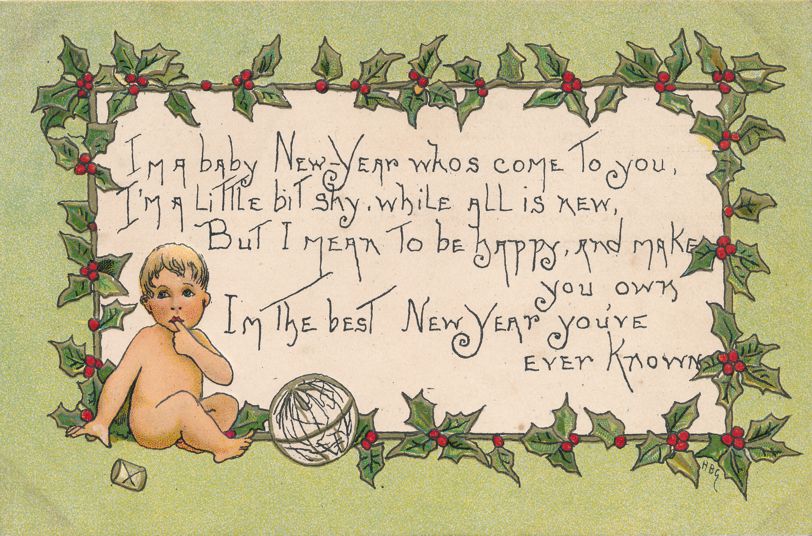 I'm a baby New-Year whos come to you,
I'm a little bit shy, while all is new,
But I mean to be happy, and make
you own
I'm the best New Year you've
ever known
HBG
X